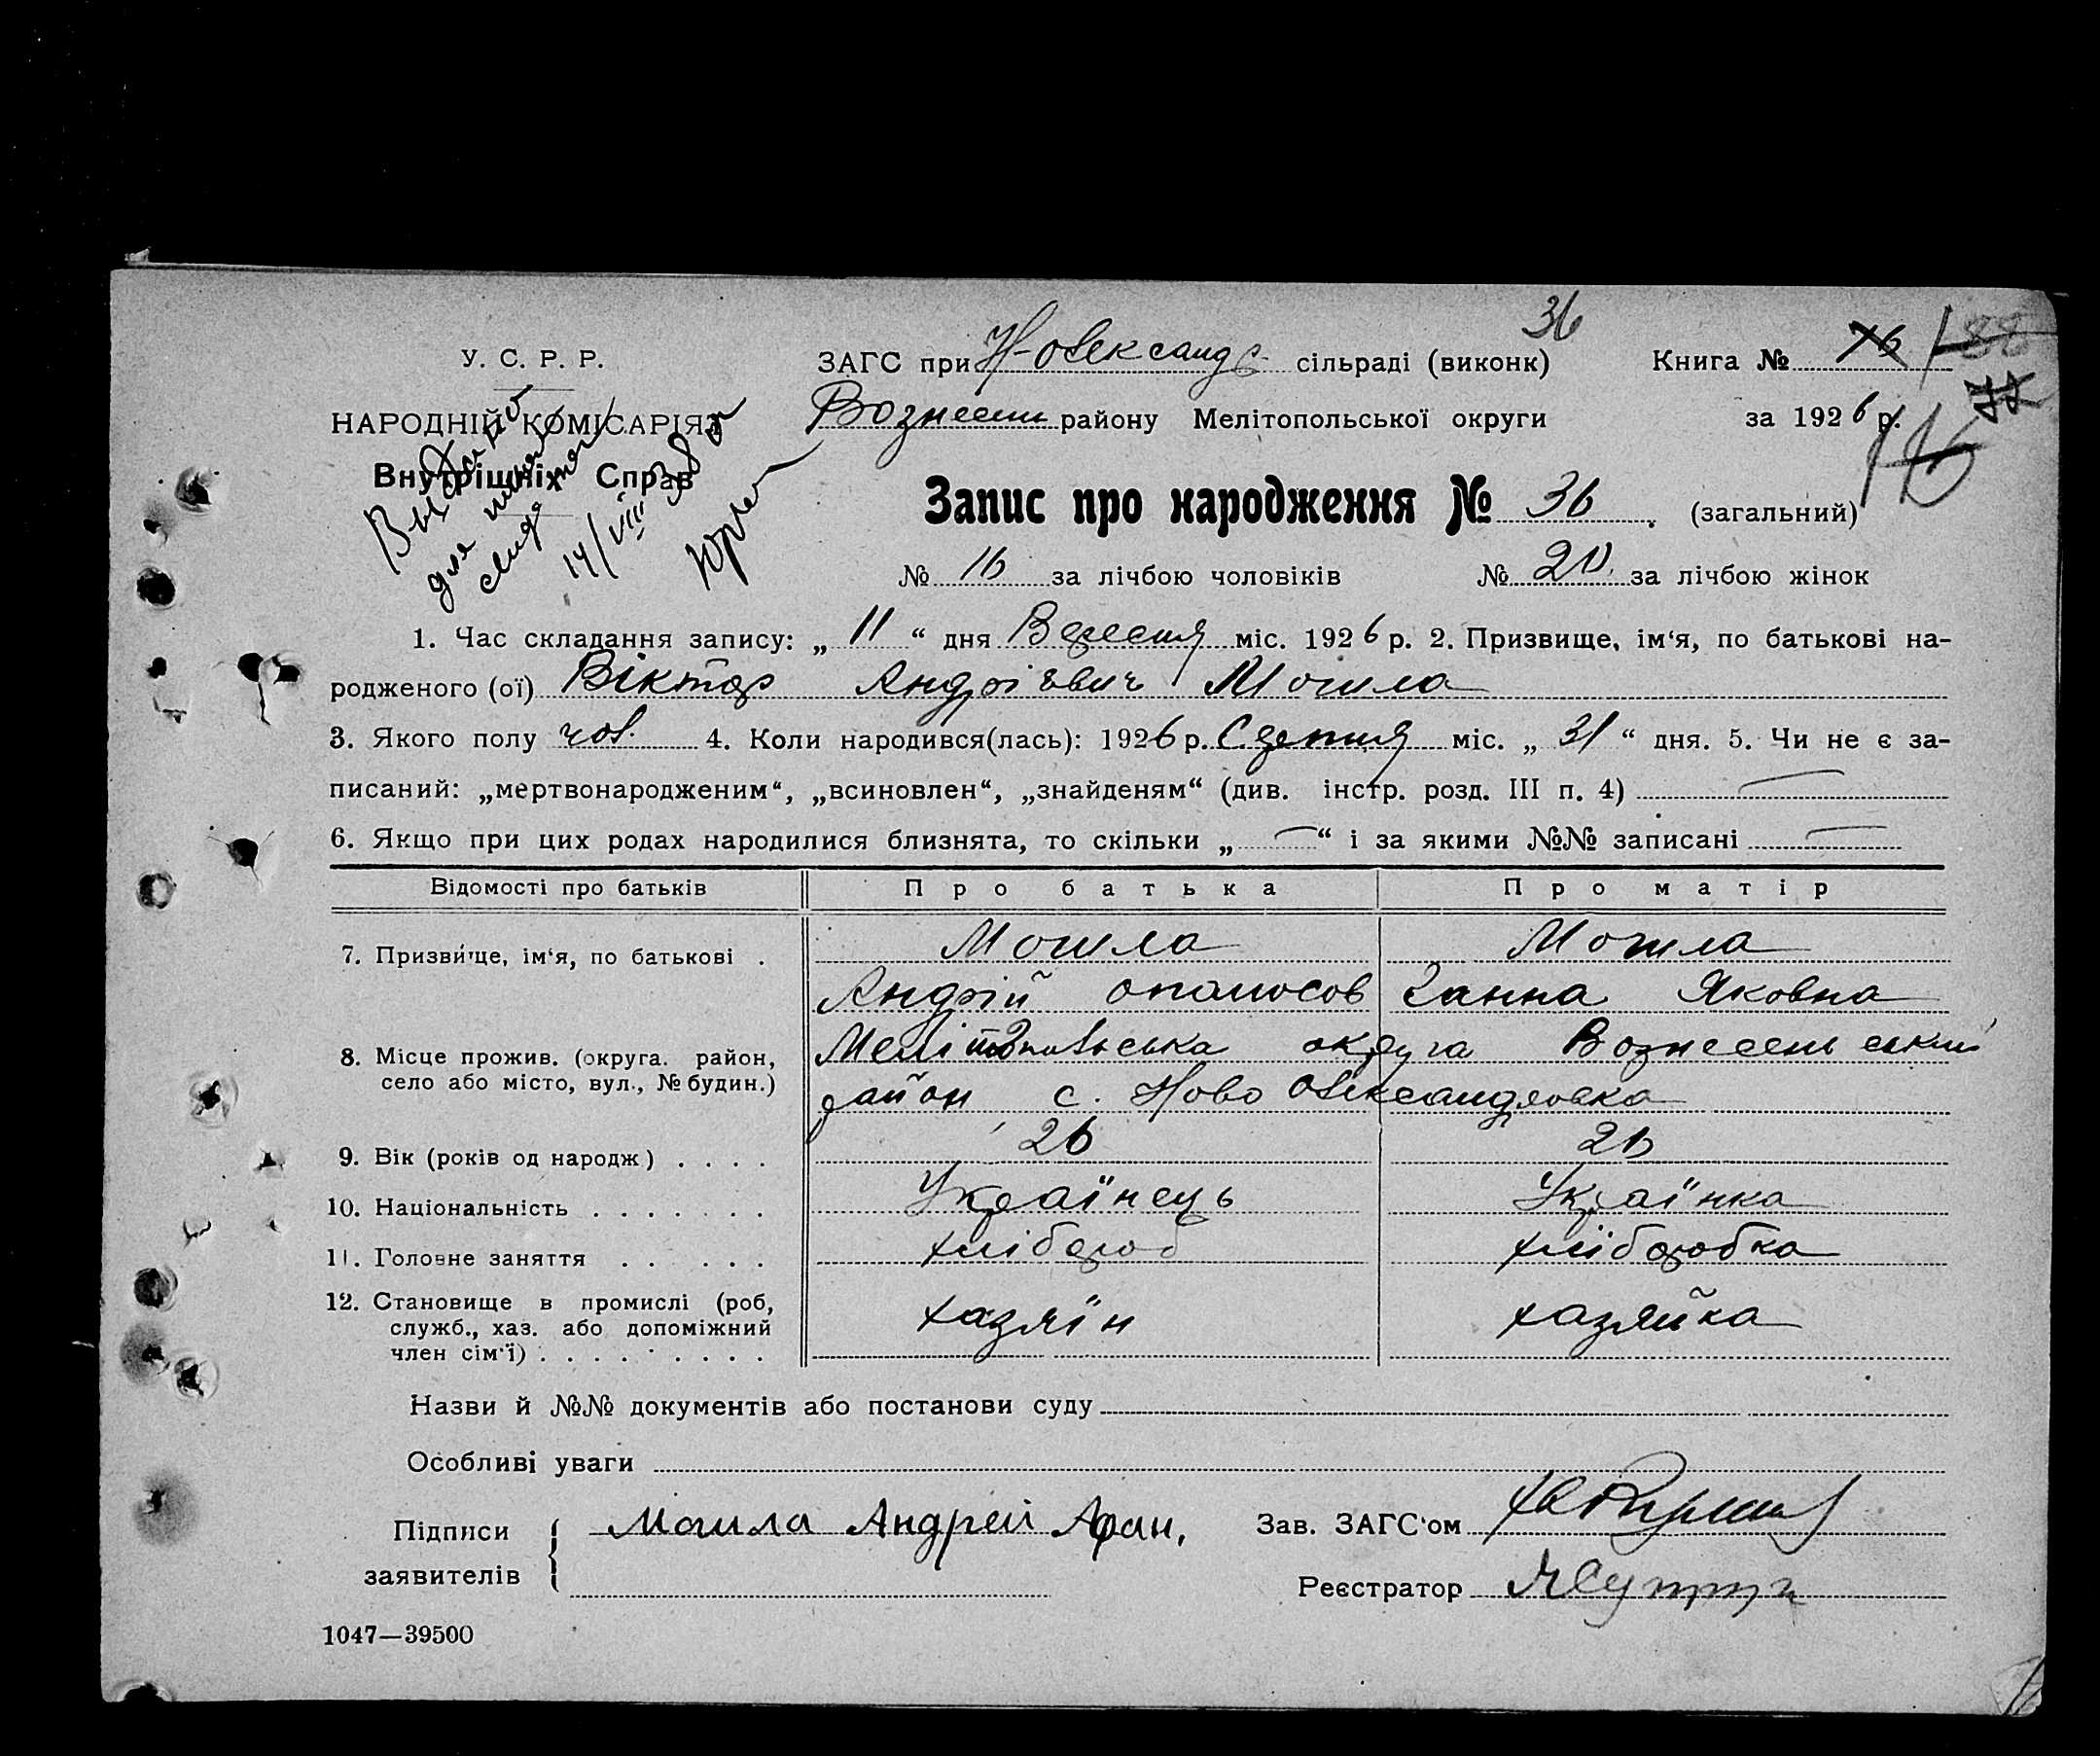 36
У. С. Р. Р. ЗАГС при Н-Олександр. сільраді (виконк) Книга № 76 188
НАРОДНІЙ КОМІСАРІЯТ Вознесень району Мелітопольської округи за 1926 р. 77
Внутрішніх Справ 176
Выдано
для
14/VIII 38 г
Запис про народження № 36. (загальний)
№ 16 за лічбою чоловіків № 20 за лічбою жінок
1. Час складання запису: „ 11 “ дня Вересня міс. 1926 р. 2. Призвище, ім‘я, по батькові на-
родженого (ої) Віктор Андрієвич Могила
3. Якого полу чол. 4. Коли народився(лась): 1926 р. Серпня міс. „ 31 “ дня. 5. Чи не є за-
писаний: „мертвонародженим“, „всиновлен“, „знайденям“ (див. інстр. розд. III п. 4) —
6. Якщо при цих родах народилися близнята, то скільки „ — “ і за якими №№ записані —
Відомості про батьків Про батька Про матір
7. Призвище, ім‘я, по батькові . Могила Могила
Андрій Опанасов Ганна Яковна
8. Місце прожив. (округа. район, Мелітопольська округа Вознесенський
село або місто, вул., № будин.) район с. Ново Олександровка
9. Вік (років од народж) . . . . 26 26
10. Національність . . . . . . . Українець Українка
11. Головне заняття . . . . . . хлібороб хліборобка
12. Становище в промислі (роб, хазяїн хазяйка
служб., хаз. або допоміжний
член сім‘ї) . . . . . . . . .
Назви й №№ документів або постанови суду
Особливі уваги
Підписи Могила Андрей Афан. Зав. ЗАГС‘ом
заявителів Реєстратор
1047—39500